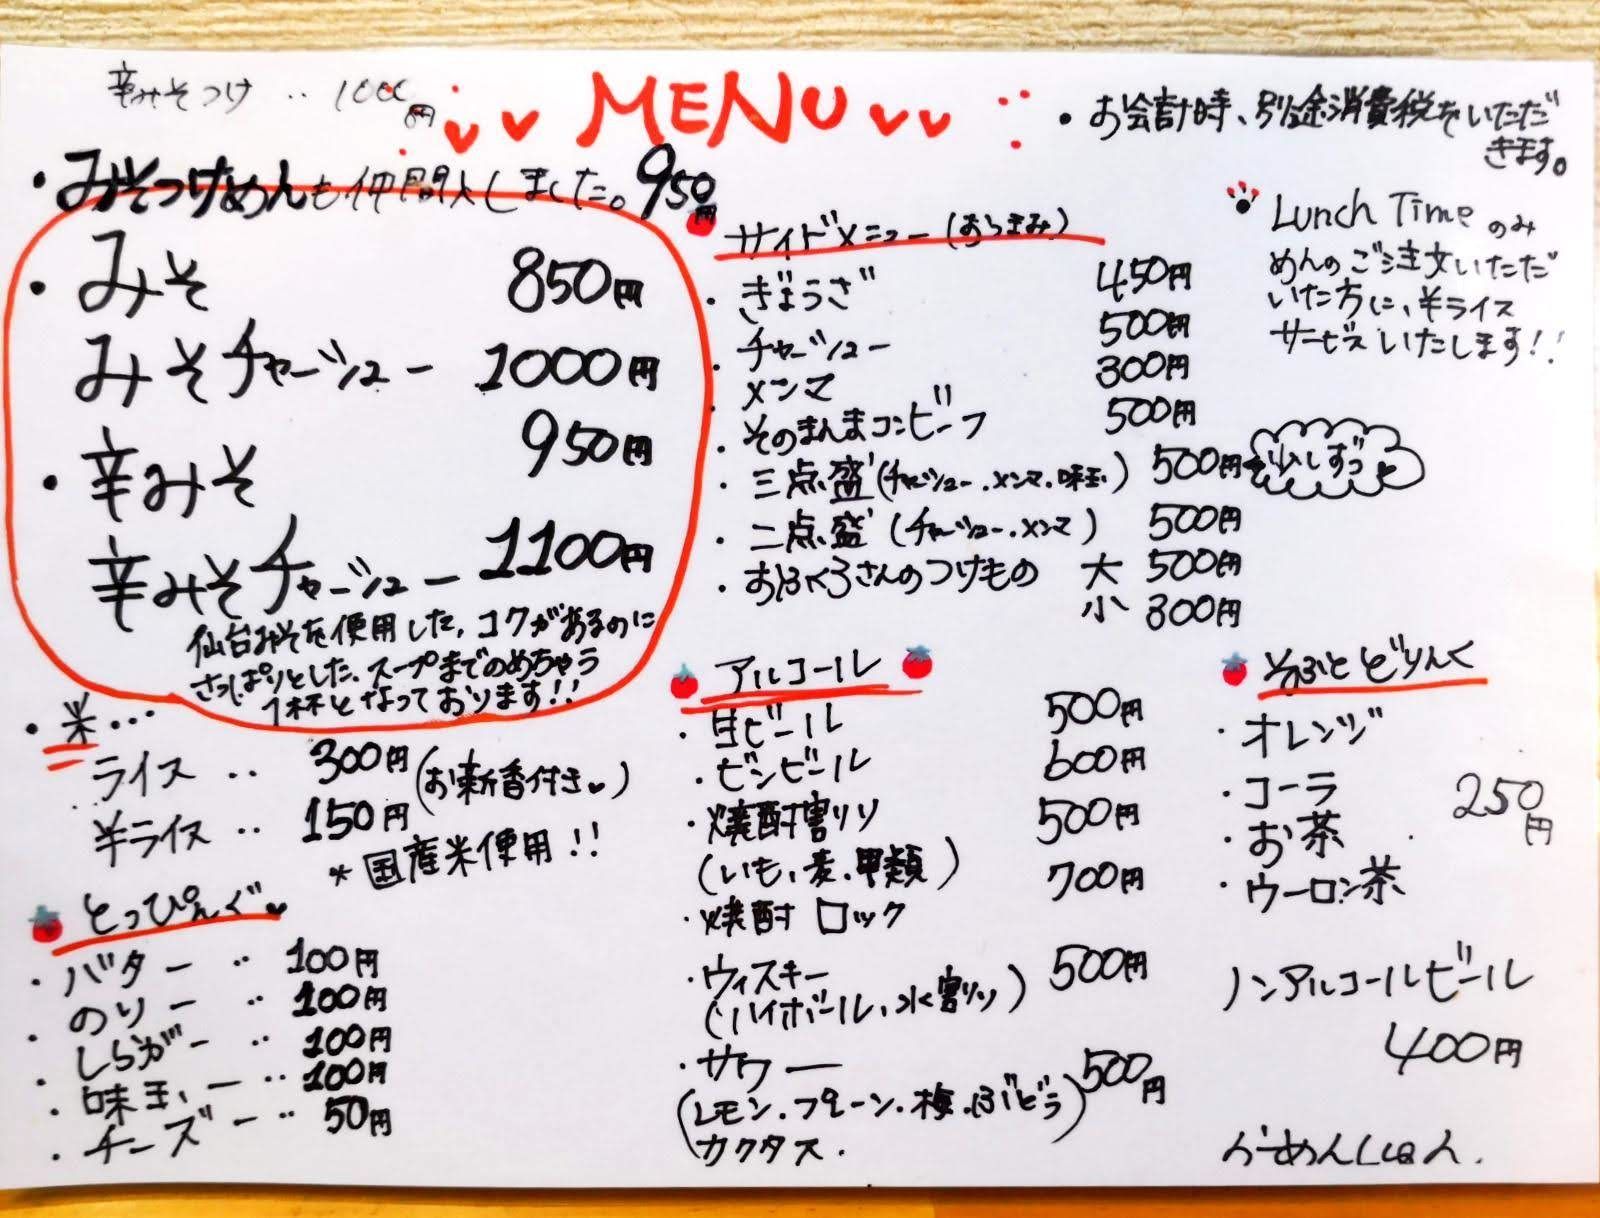 MENU
辛みそつけ ‥ 1000円
・お会計時、別途消費税をいただ
きます。
・みそつけめんも仲間入しました。950円
・みそ 850円
みそチャーシュー 1000円
・辛みそ 950円
辛みそチャーシュー 1100円
仙台みそを使用した、コクがあるのに
さっぱりとした、スープまでのめちゃう
1杯となっております!!
・米…
ライス ‥ 300円(お新香付き♥)
半ライス ‥ 150円
*国産米使用!!
とっぴんぐ♥
・バター ‥ 100円
・のりー ‥ 100円
・しらがー ‥ 100円
・味玉、ー ‥ 100円
・チーズー ‥ 50円
サイドメニュー(おつまみ)
・ぎょうざ 450円
・チャーシュー 500円
・メンマ 300円
・そのまんまコンビーフ 500円
・三点盛(チャーシュー.メンマ.味玉) 500円 少しずつ
・二点盛(チャーシュー.メンマ) 500円
・おふくろさんのつけもの 大 500円
小 300円
Lunch Timeのみ
めんのご注文いただ
いた方に、半ライス
サービスいたします!!
アルコール
・生ビール 500円
・ビンビール 600円
・焼酎割り 500円
(いも、麦、甲類)
・焼酎ロック 700円
・ウィスキー 500円
(ハイボール、水割り)
・サワー 500円
(レモン.プレーン.梅.ぶどう)
カクタス.
そふとどりんく
・オレンジ
・コーラ
・お茶
・ウーロン茶
250円
ノンアルコールビール
400円
らーめん